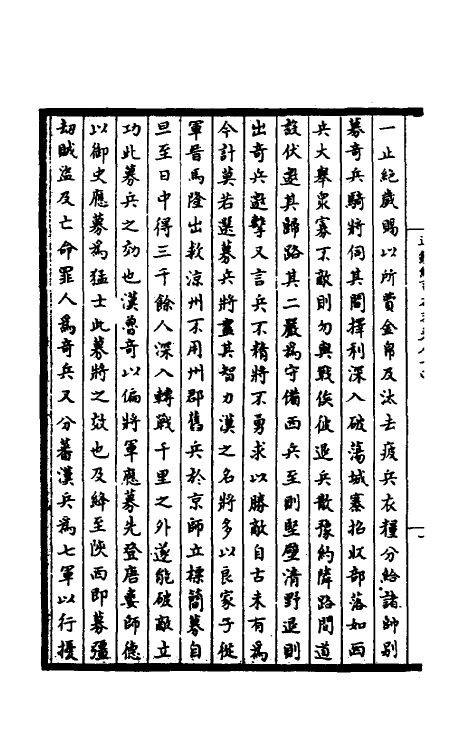 一止絶歲賜以所費金帛及汰去疲兵衣糧分給諸師别
募奇兵騎將伺其間擇利深入破蕩城寨招收部落如西
兵大舉衆寡不敵則勿與戰俟彼退兵散豫約隣路間道
設伏邀其歸路其二嚴為守備西兵至則堅壁清野退則
出奇兵邀擊又言兵不精將不勇求以勝敵自古未有為
今計莫若選募兵將盡其智力漢之名將多以良家子從
軍晉馬隆出救涼州不用州郡舊兵於京師立標簡募自
旦至日中得三千餘人深入轉戰千里之外遂能破敵立
功此募兵之効也漢魯奇以偏將軍應募先登唐婁師德
以御史應募為猛士此募將之效也及絳至陝西即募彊
刧賊盜及亡命罪人為奇兵又分蕃漢兵為七軍以行擾